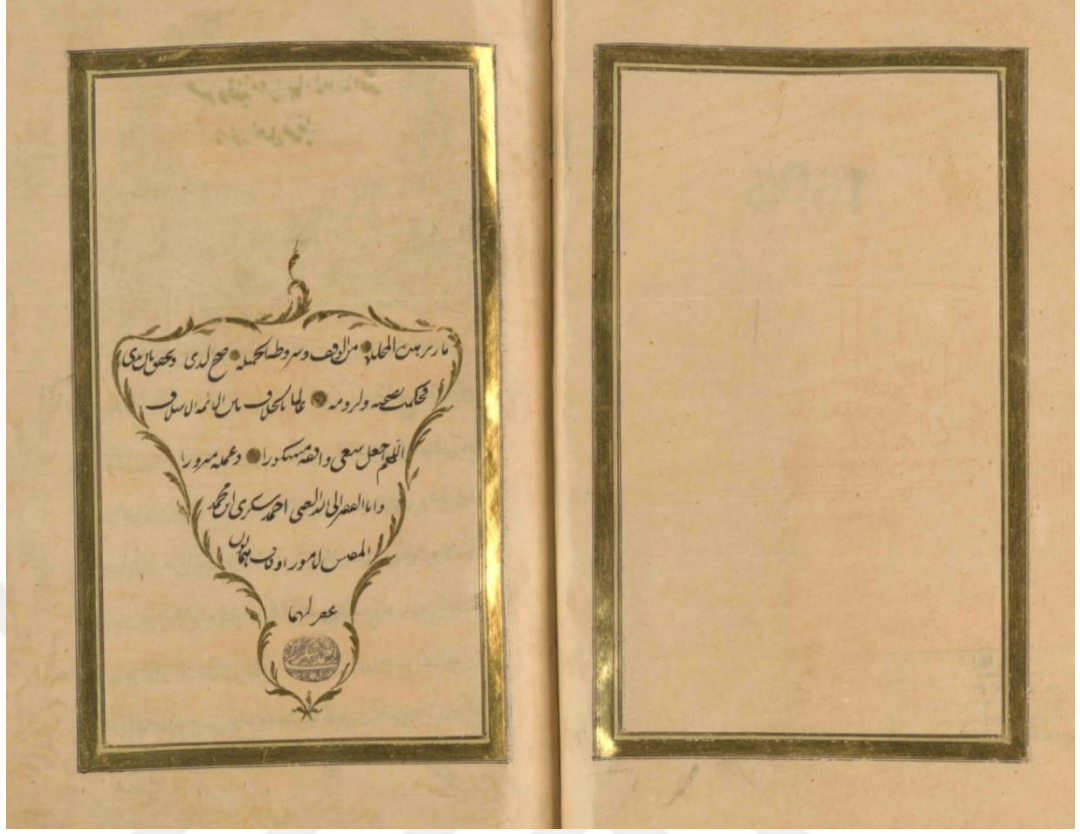 ما زبر في هذه المجلة من الوقف وشروطه الجميلة صح لدي
فحكمت بصحته ولزومه عالما بالخلاف بين الائمة الاسلاف
اللهم اجعل سعي واقفه مشكورا وعمله مبرورا
وانا الفقير الى الله الغني احمد شكري ابن محمد
المفتش لامور اوقاف همايون
غفر لهما